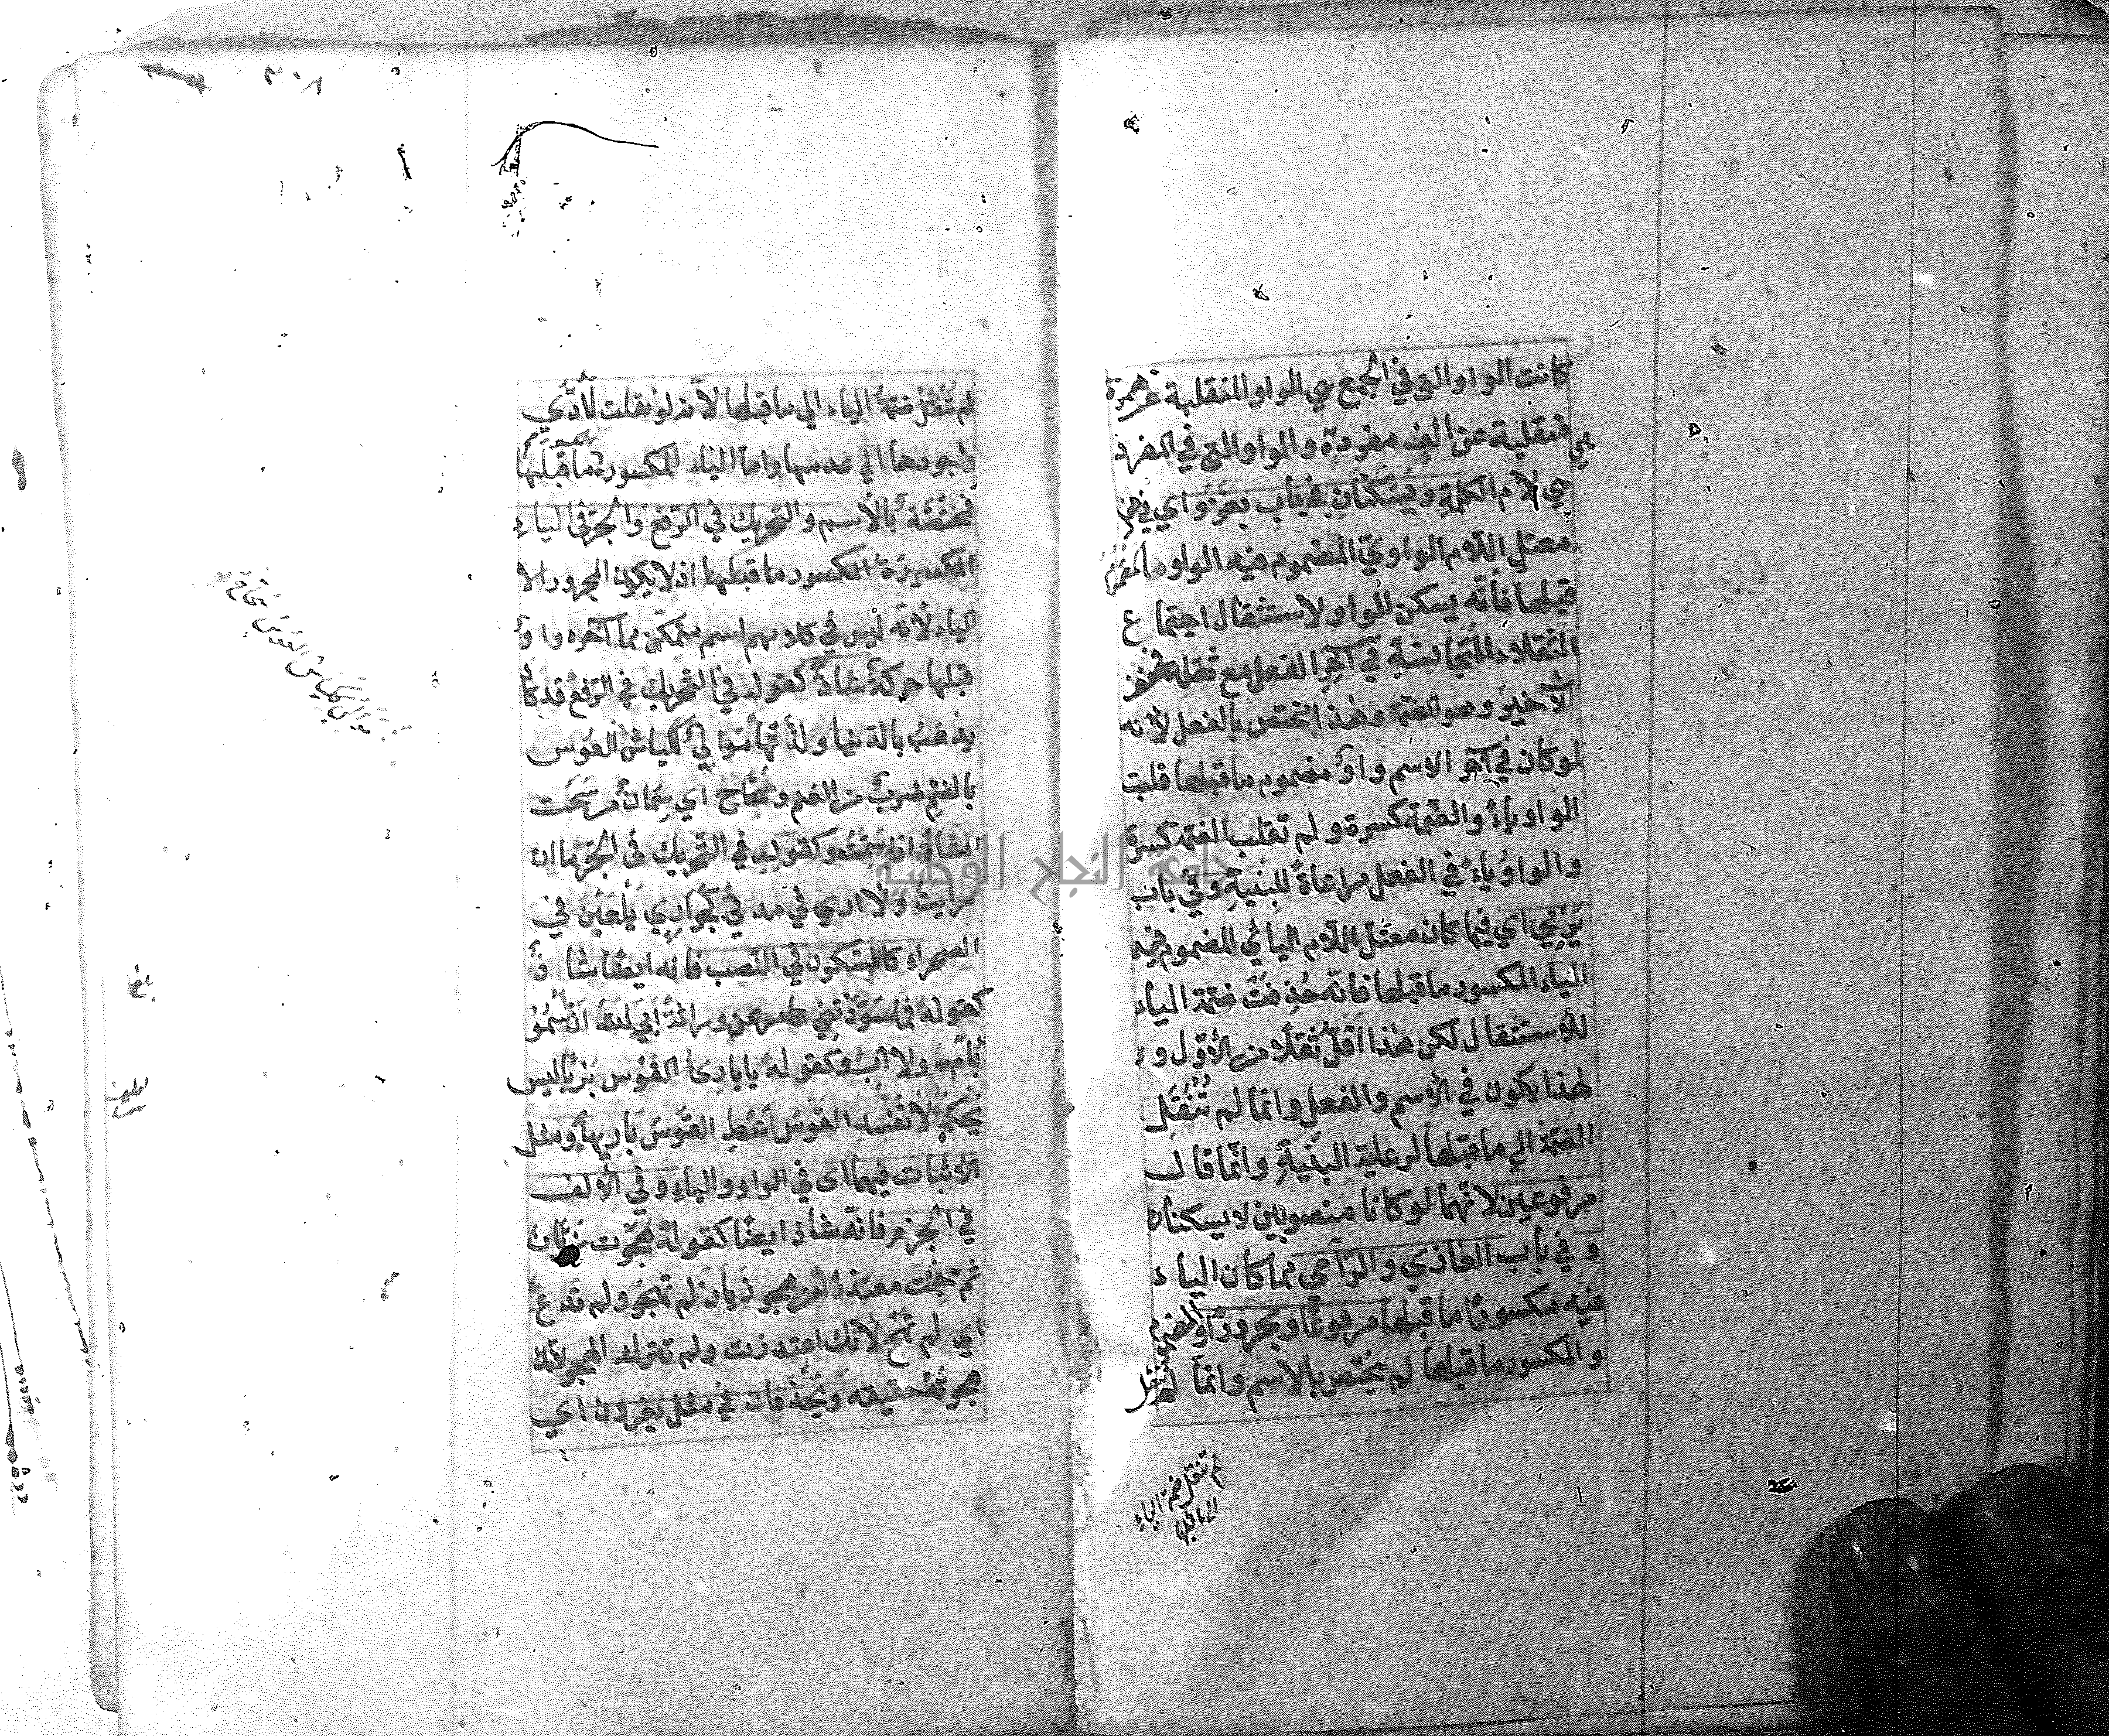 كانت الواو التي في الجمع هي الواو المنقلبة عن همزة
هي منقلبة عن الف مفردة والواو التي في المفرد
هي لام الكلمة وتسكنان في باب يغزو اي في
معتل اللام الواوي المضموم فيه الواو المضموم
قبلها فانه يسكن الواو لاستثقال اجتماع
الثقلاء المتجانسة في آخر الفعل مع ثقله فخفف
الاخير وهو الضمة وهذا مختص بالفعل لانه
لو كان في آخر الاسم واو مضموم ما قبلها قلبت
الواو ياء والضمة كسرة ولم تقلب الضمة كسرة
والواو ياء في الفعل مراعاة للبنية وفي باب
يرمي اي فيما كان معتل اللام اليائي المضموم فيه
الياء المكسور ما قبلها فانه حذفت ضمة الياء
للاستثقال لكن هذا اقل ثقلا من الاول و
لهذا يكون في الاسم والفعل وانما لم تُنْقَل
الضمة الى ما قبلها لرعاية البنية وانما قال
مرفوعين لانهما لو كانا منصوبين لا يسكنان
وفي باب الغازي والرامي مما كان الياء
فيه مكسورا ما قبلها مرفوعا ومجرورا والمضموم
والمكسور ما قبلها لم يختص بالاسم وانما لم تنقل
لم تنقل ضمة الياء
الى ما قبلها
٢٠٨
لم تُنْقَل ضمة الياء الى ما قبلها لانه لو نقلت لأدّى
وجودها الى عدمها واما الياء المكسورة المكسور ما قبلها
فمختصة بالاسم والتحريك في الرفع والجر في الياء
المكسورة المكسور ما قبلها اذ لا يكون المجرور الا
الياء لانه ليس في كلامهم اسم متمكن مما آخره واو
قبلها حركة شاذ كقوله في التحريك في الرفع قد كاد
يذهب بالدنيا ولذتها موالي ككباش العوس
بالضم ضرب من الغنم وسُحّاح اي سِمان من سَحَّت
الشاة اذا سَمُنَت وكقوله في التحريك في الجر ما ان
رايت ولا ارى في مدتي كجواري يلعبن في
الصحراء كالسكون في النصب فانه ايضا شاذ
كقوله فما سوّدتني عامر عن وراثة ابى الله ان اسمو
بأم ولا اب وكقوله يا باري القوس بريا ليس
يحكمه لا تفسد القوس اعط القوس باريها ومثل
الاثبات فيهما اي في الواو والياء وفي الالف
في الجزم فانه شاذ ايضا كقوله هجوت زبّان
ثم جئت معتذرا من هجو زبان لم تهجو ولم تدع
اي لم تهج لانك اعتذرت ولم تترك الهجو لانك
هجوته حقيقة ويُحذفان في مثل يغزون اي
موالي ككباش العوس سحاح
بلغ